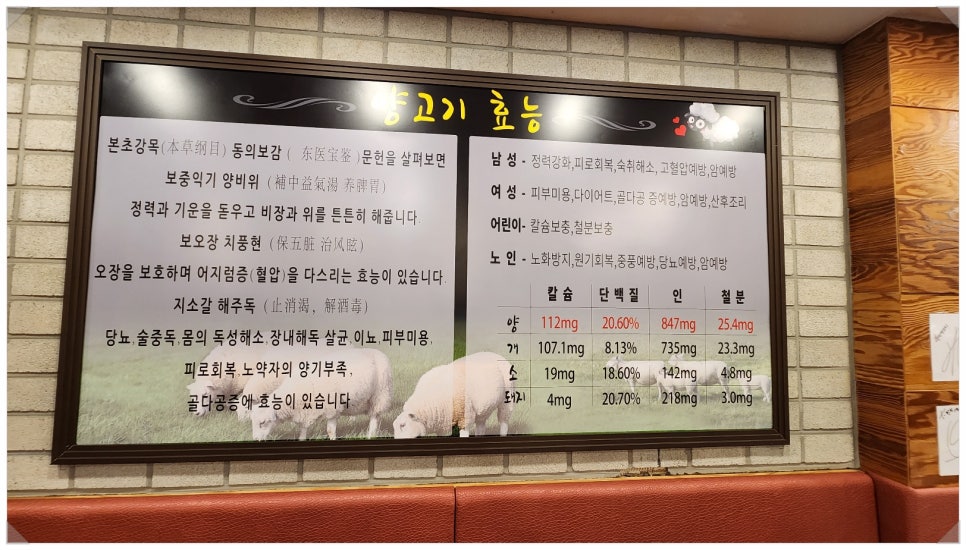 양고기 효능
본초강목(本草纲目) 동의보감 ( 东医宝鉴 )문헌을 살펴보면
보중익기 양비위 (補中益氣湯 养脾胃)
정력과 기운을 돋우고 비장과 위를 튼튼히 해줍니다.
보오장 치풍현 (保五脏 治风眩)
오장을 보호하며 어지럼증(혈압)을 다스리는 효능이 있습니다.
지소갈 해주독 (止消渴, 解酒毒)
당뇨,술중독,몸의 독성해소,장내해독 살균,이뇨,피부미용,
피로회복,노약자의 양기부족,
골다공증에 효능이 있습니다
남 성 - 정력강화,피로회복,숙취해소, 고혈압예방,암예방
여 성 - 피부미용,다이어트,골다공 증예방,암예방,산후조리
어린이- 칼슘보충,철분보충
노 인 - 노화방지,원기회복,중풍예방,당뇨예방,암예방
칼슘 단백질 인 철분
양 112mg 20.60% 847mg 25.4mg
개 107.1mg 8.13% 735mg 23.3mg
소 19mg 18.60% 142mg 4.8mg
돼지 4mg 20.70% 218mg 3.0mg